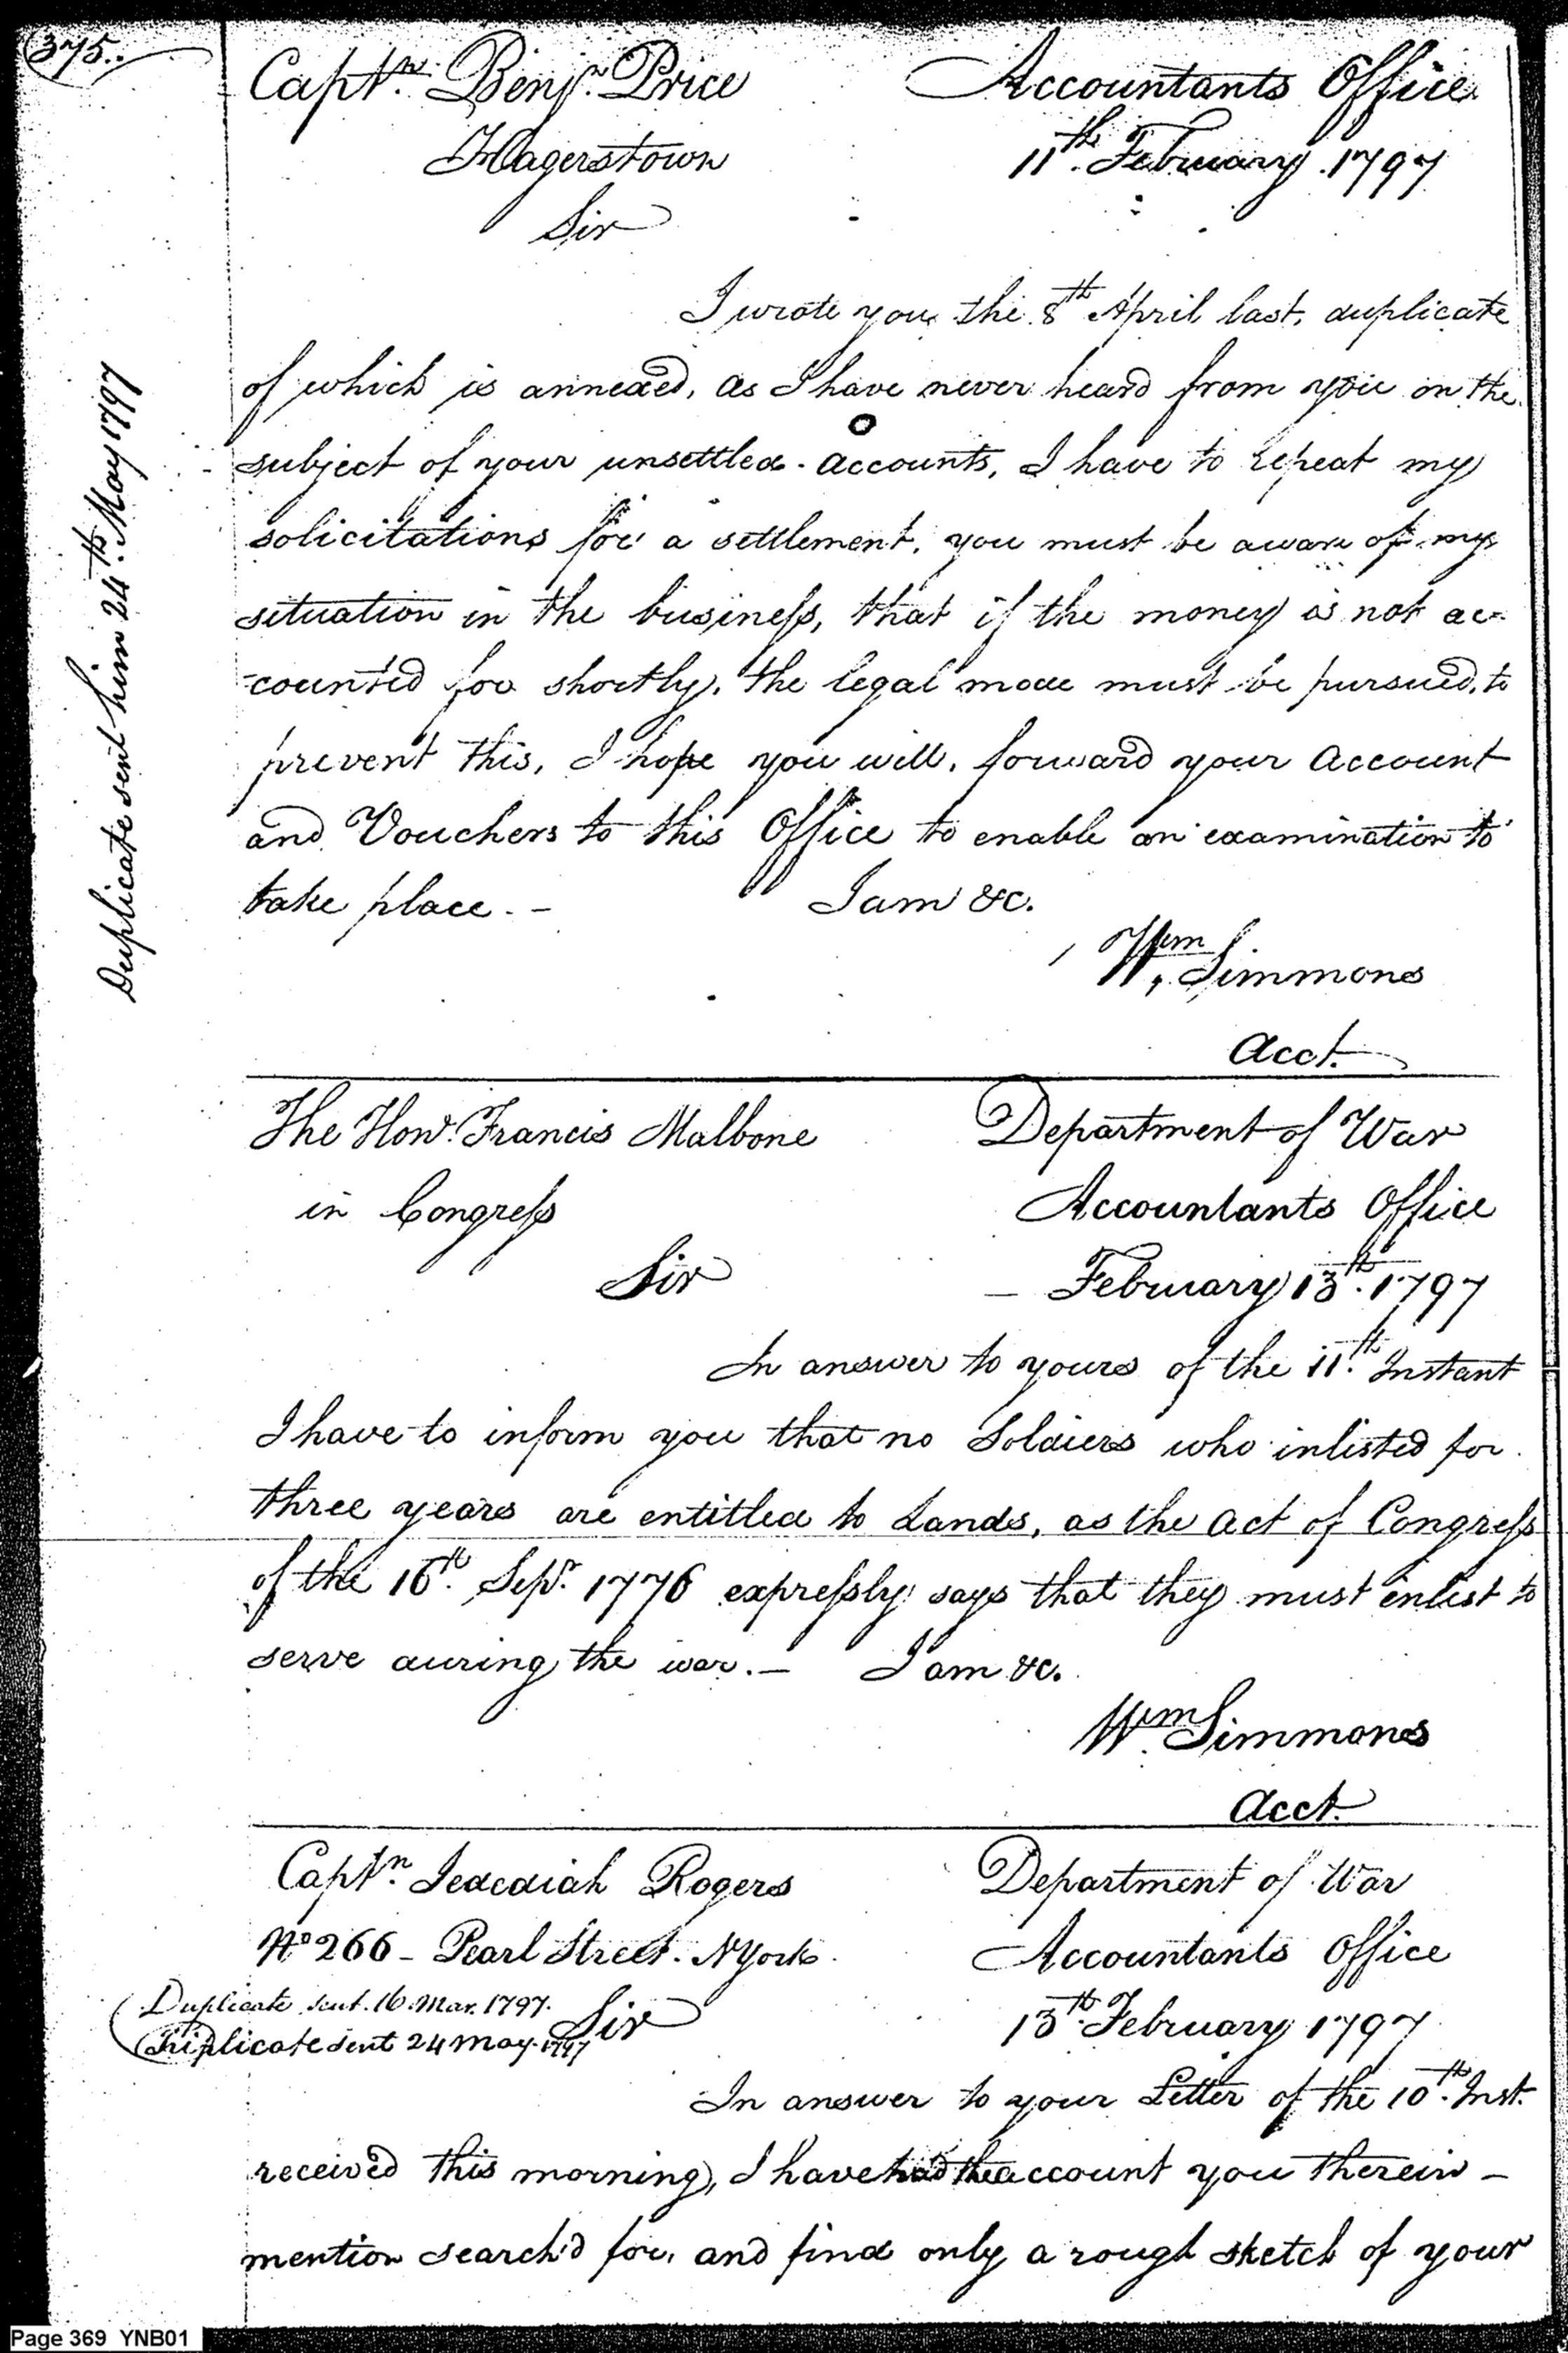 375.
Captn. Benjn. Price
Hagerstown
Sir
Accountants Office
11th. February 1797
Duplicate sent him 24th. May 1797
I wrote you the 8th April last, duplicate
of which is annexed, as I have never heard from you on the
subject of your unsettled accounts, I have to repeat my
solicitations for a settlement, you must be aware of my
situation in the business, that if the money is not ac-
-counted for shortly, the legal mode must be pursued, to
prevent this, I hope you will, forward your Account
and Vouchers to this Office to enable an examination to
take place. - I am &c.
Wm. Simmons
Acct.
The Hond. Francis Malbone
in Congress
Sir
Department of War
Accountants Office
February 13th. 1797
In answer to yours of the 11th. Instant
I have to inform you that no Soldiers who inlisted for
three years are entitled to Lands, as the Act of Congress
of the 16th. Sepr. 1776 expressly says that they must enlist to
serve during the war. - I am &c.
Wm. Simmons
Acct.
Captn. Jedediah Rogers
No 266 - Pearl Street. N York
Duplicate sent. 16. Mar. 1797.
Triplicate sent 24 May. 1797
Sir
Department of War
Accountants Office
13th. February 1797
In answer to your Letter of the 10th. Inst.
received this morning, I have had the account you therein -
mention search'd for, and find only a rough sketch of your
Page 369 YNB01